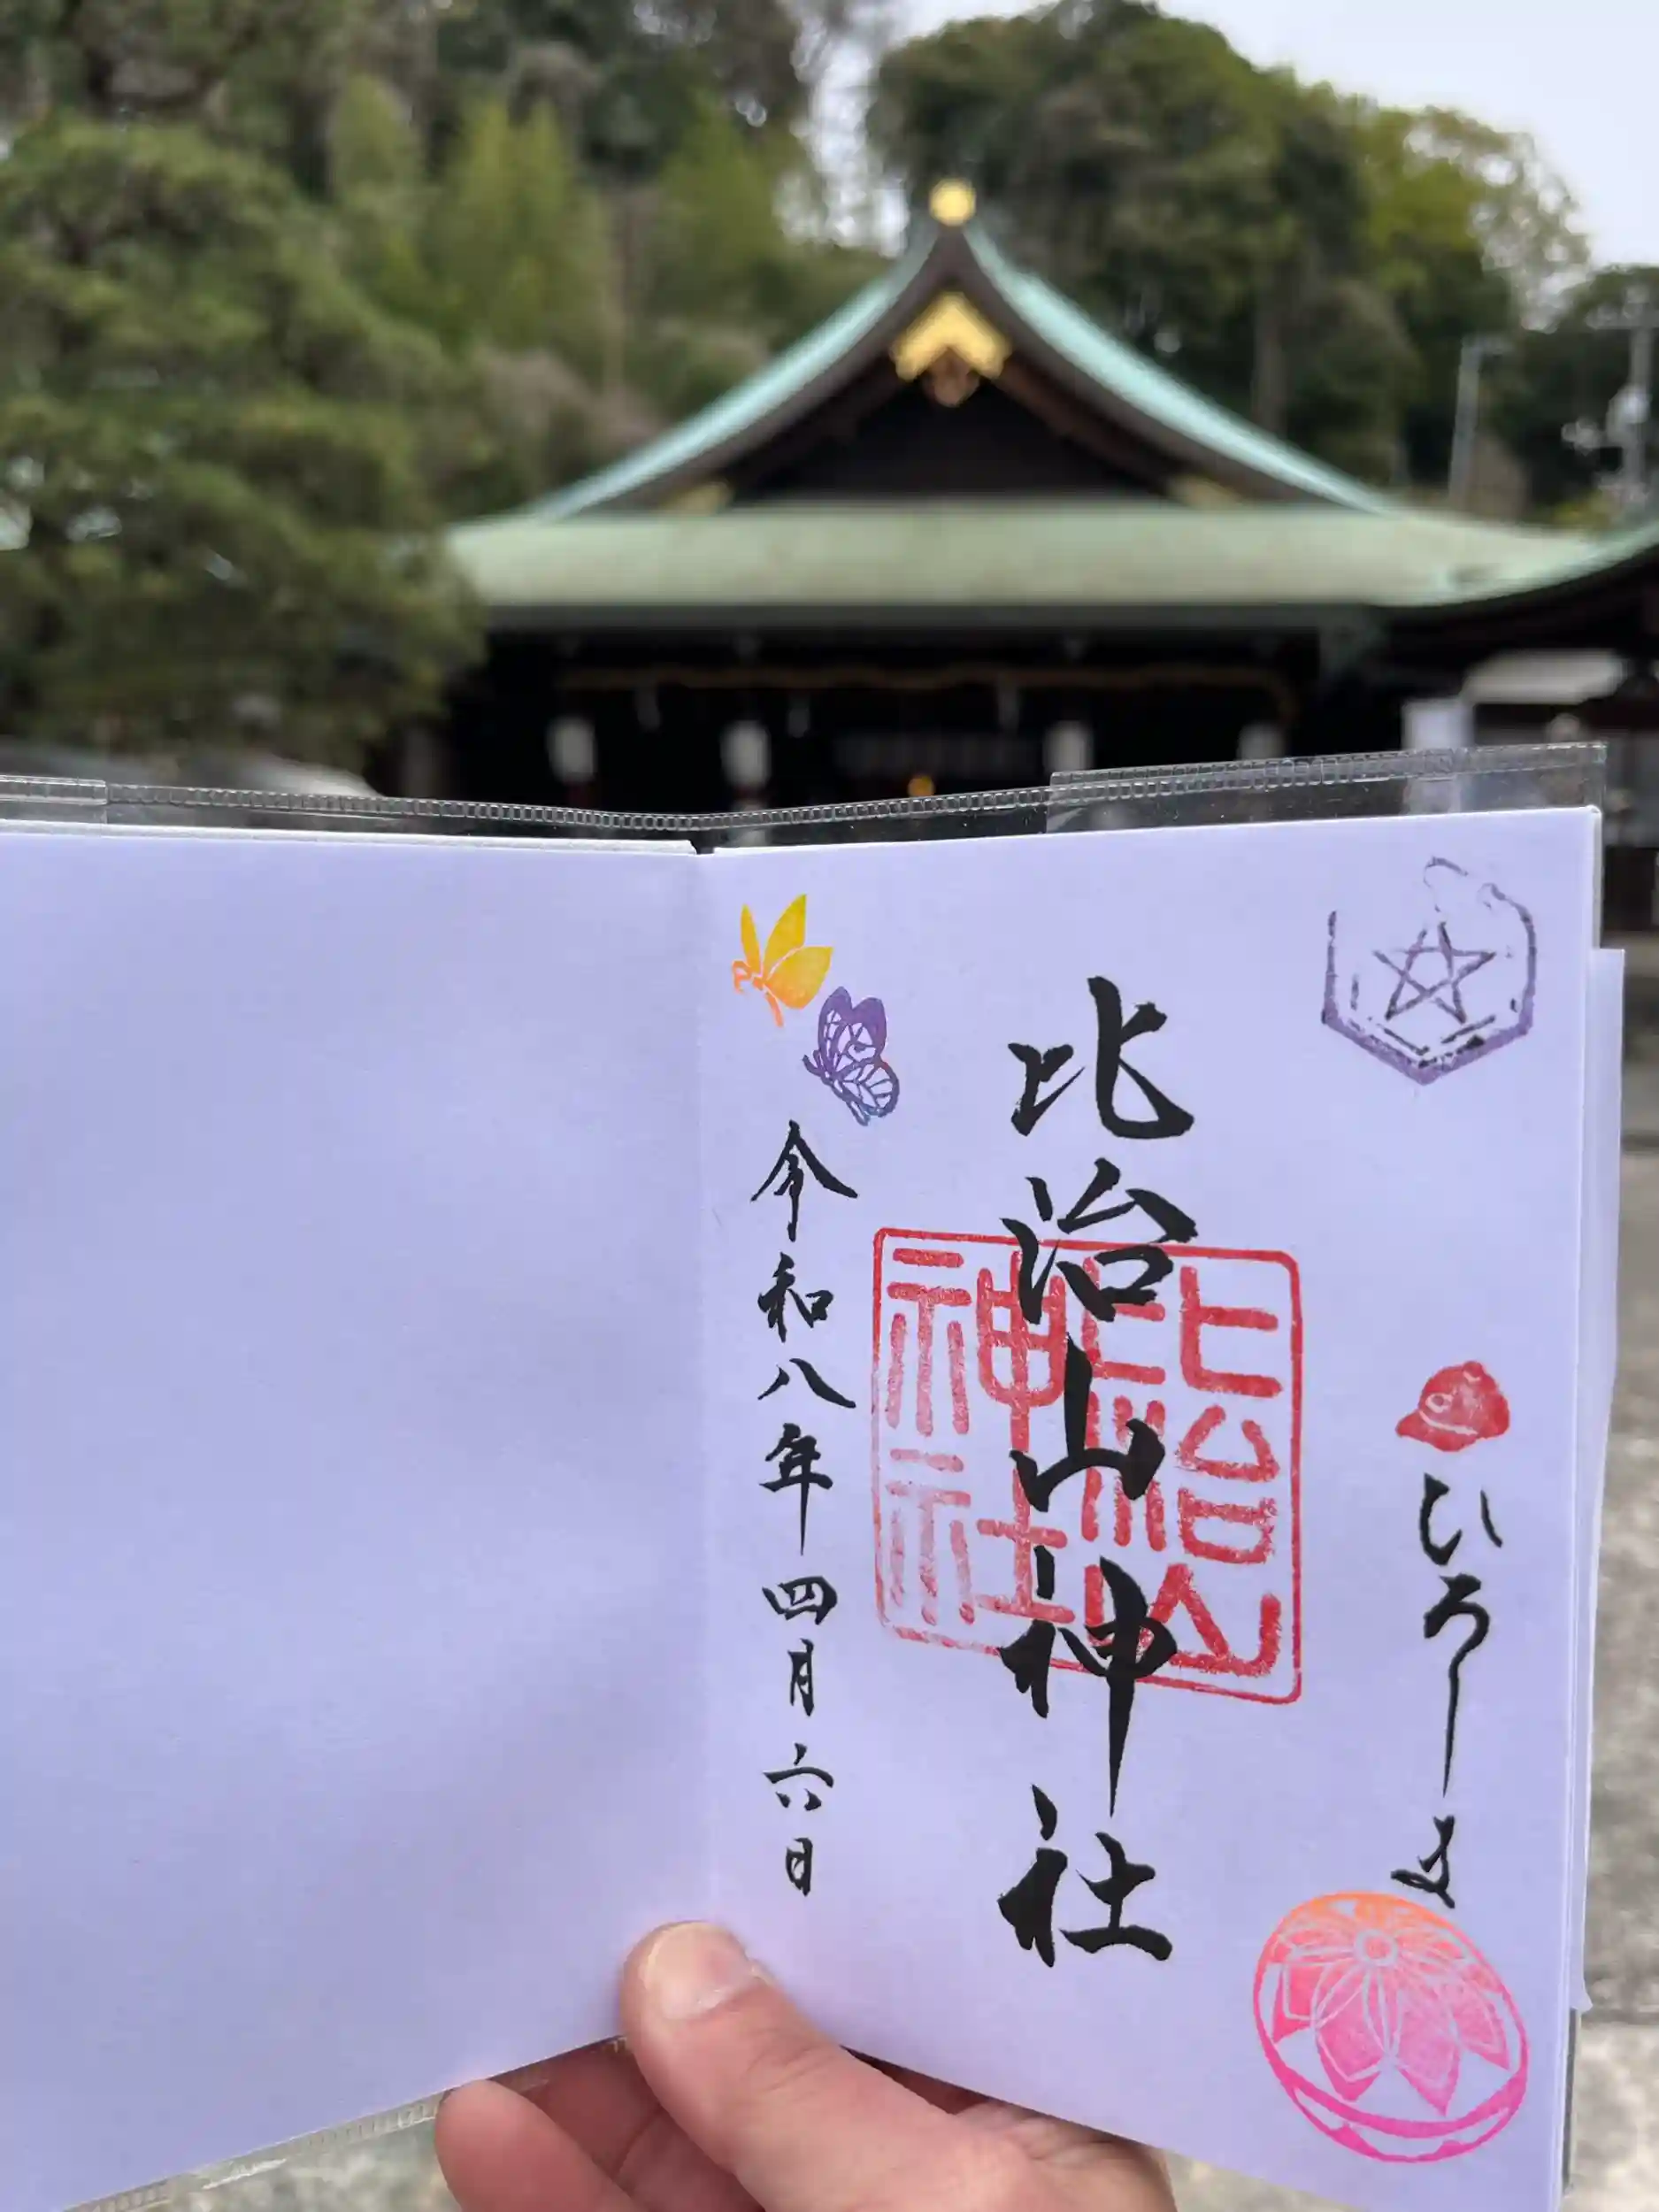 ひろしま
比治山神社
比治山神社
令和八年四月六日